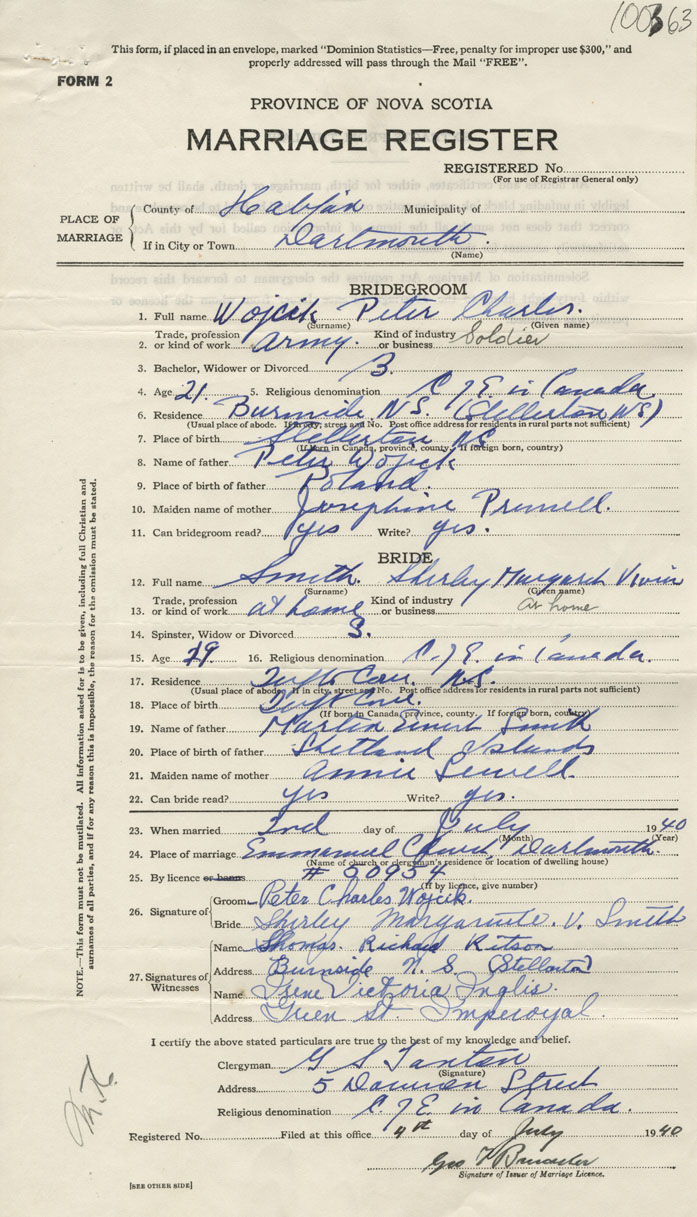 100363
This form, if placed in an envelope, marked "Dominion Statistics—Free, penalty for improper use $300," and
properly addressed will pass through the Mail "FREE".
FORM 2
PROVINCE OF NOVA SCOTIA
MARRIAGE REGISTER
REGISTERED No.
(For use of Registrar General only)
PLACE OF MARRIAGE
County of Halifax Municipality of
If in City or Town Dartmouth.
(Name)
BRIDEGROOM
1. Full name Wojcik Peter Charles.
(Surname) (Given name)
2. Trade, profession or kind of work Army. Kind of industry or business Soldier
3. Bachelor, Widower or Divorced B.
4. Age 21. 5. Religious denomination C of E in Canada
6. Residence Burnside N.S. (Stellerton NS)
(Usual place of abode. If in city, street and No. Post office address for residents in rural parts not sufficient)
7. Place of birth Stellerton NS
(If born in Canada, province, county. If foreign born, country)
8. Name of father Peter Wojcik
9. Place of birth of father Poland.
10. Maiden name of mother Josephine
11. Can bridegroom read? yes Write? yes.
BRIDE
12. Full name Smith. Shirley Margaret Vivian
(Surname) (Given name)
13. Trade, profession or kind of work at home Kind of industry or business At home
14. Spinster, Widow or Divorced S.
15. Age 19. 16. Religious denomination C. of E. in Canada.
17. Residence Tufts Cove. N.S.
(Usual place of abode. If in city, street and No. Post office address for residents in rural parts not sufficient)
18. Place of birth Tufts Cove.
(If born in Canada, province, county. If foreign born, country)
19. Name of father Martin Smith
20. Place of birth of father Shetland Islands
21. Maiden name of mother Annie Sewell.
22. Can bride read? yes Write? yes.
23. When married 2nd day of July 1940
(Month) (Year)
24. Place of marriage Emmanuel Church, Dartmouth.
(Name of church or clergyman's residence or location of dwelling house)
25. By licence or banns # 50954
(If by licence, give number)
26. Signature of
Groom Peter Charles Wojcik.
Bride Shirley Marguerite. V. Smith
27. Signatures of Witnesses
Name Thomas. Richard Kitson
Address Burnside N. S. (Stellerton)
Name Irene Victoria Inglis.
Address Green St. Imperoyal.
I certify the above stated particulars are true to the best of my knowledge and belief.
Clergyman G S Tanton
(Signature)
Address 5 Dawson Street
Religious denomination C. of E. in Canada.
Registered No. Filed at this office 4th day of July 1940
Geo
Signature of Issuer of Marriage Licence.
[SEE OTHER SIDE]
NOTE.—This form must not be mutilated. All information asked for is to be given, including full Christian and
surnames of all parties, and if for any reason this is impossible, the reason for the omission must be stated.